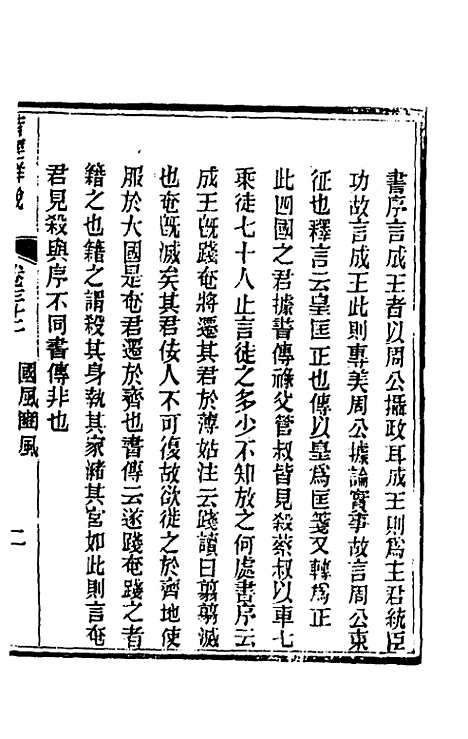 書序言成王者以周公攝政耳成王則爲主君統臣
功故言成王此則專美周公據論實事故言周公東
征也釋言云皇匡正也傳以皇爲匡箋又轉爲正
此四國之君據書傳祿父管叔皆見殺蔡叔以車七
乘徒七十人止言徒之多少不知放之何處書序云
成王既踐奄將遷其君於薄姑注云踐讀曰翦翦滅
也奄既滅矣其君佞人不可復故欲徙之於齊地使
服於大國是奄君遷於齊也書傳云遂踐奄踐之者
籍之也籍之謂殺其身執其家瀦其宮如此則言奄
君見殺與序不同書傳非也
國風豳風